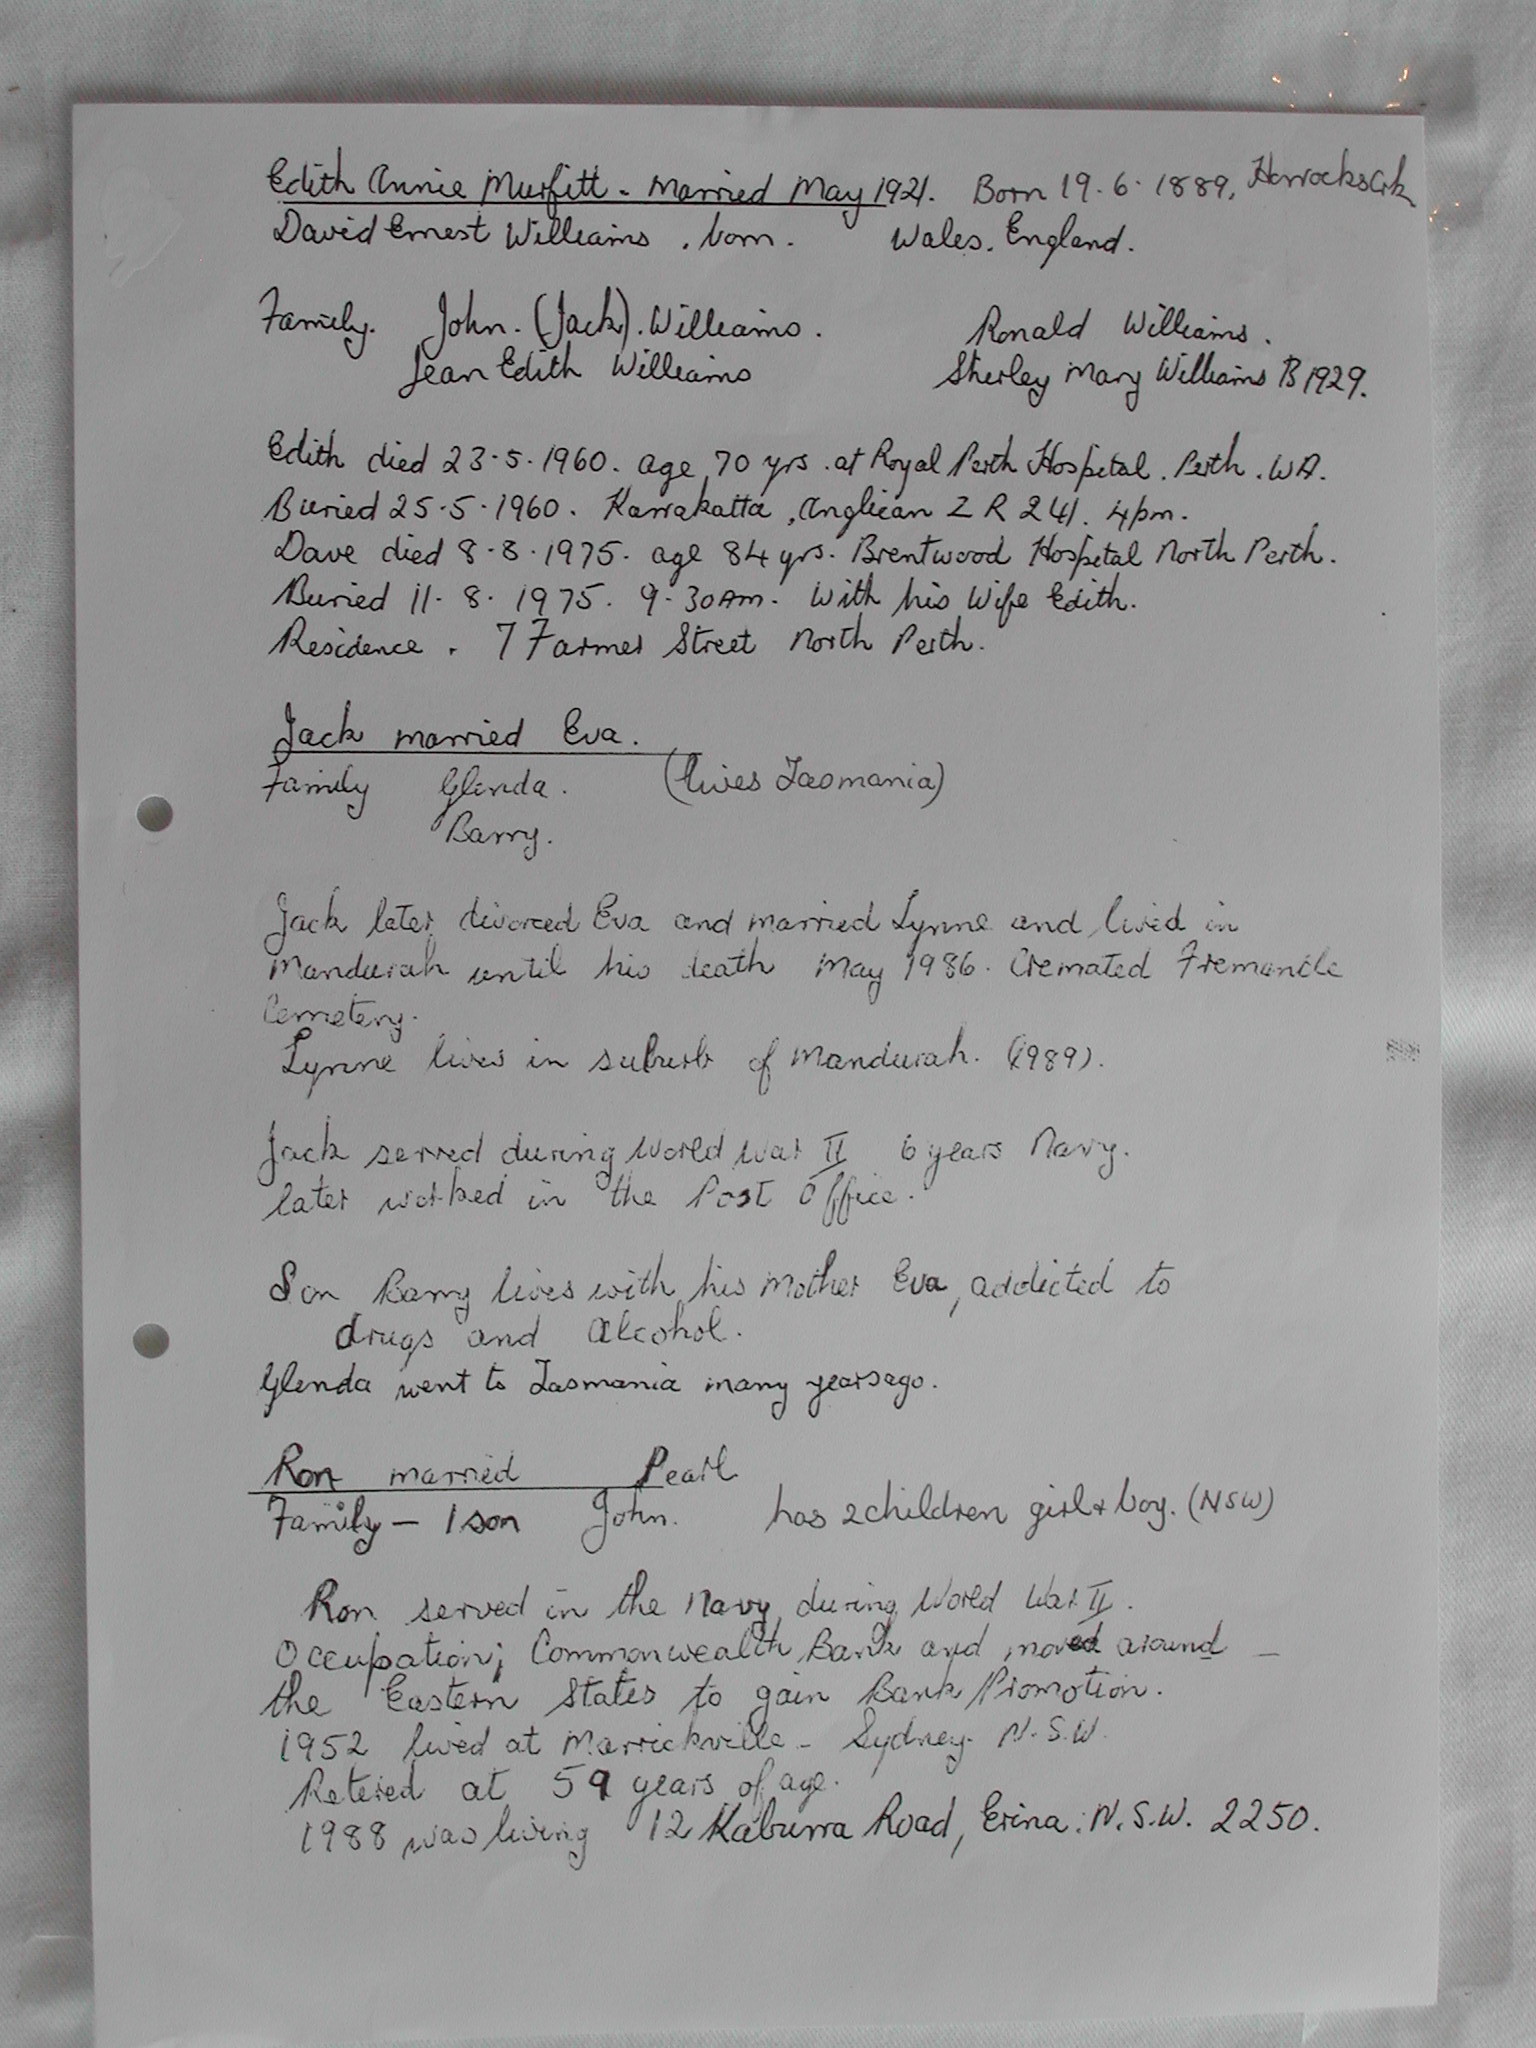 Edith Annie Murfitt - Married May 1921. Born 19.6.1889, Horrocks Crk
David Ernest Williams . born. Wales. England.
Family. John. (Jack). Williams. Ronald Williams.
Jean Edith Williams Shirley Mary Williams B 1929.
Edith died 23.5.1960. age 70 yrs. at Royal Perth Hospital. Perth. WA.
Buried 25.5.1960. Karrakatta, Anglican Z R 241. 4pm.
Dave died 8.8.1975. age 84 yrs. Brentwood Hospital North Perth.
Buried 11.8.1975. 9.30AM. With his Wife Edith.
Residence. 7 Farmer Street North Perth.
Jack married Eva.
Family Glenda. (lives Tasmania)
Barry.
Jack later divorced Eva and married Lynne and lived in
Mandurah until his death May 1986. Cremated Fremantle
Cemetery.
Lynne lives in suburb of Mandurah. (1989).
Jack served during World War II 6 years Navy.
later worked in the Post Office.
Son Barry lives with his Mother Eva, addicted to
drugs and alcohol.
Glenda went to Tasmania many years ago.
Ron married Pearl
Family - 1 son John. has 2 children girl + boy. (NSW)
Ron served in the Navy during World War II.
Occupation; Commonwealth Bank and moved around -
the Eastern States to gain Bank Promotion.
1952 lived at Marrickville - Sydney. N.S.W.
Retired at 59 years of age.
1988 was living 12 Kaburra Road, Erina. N.S.W. 2250.